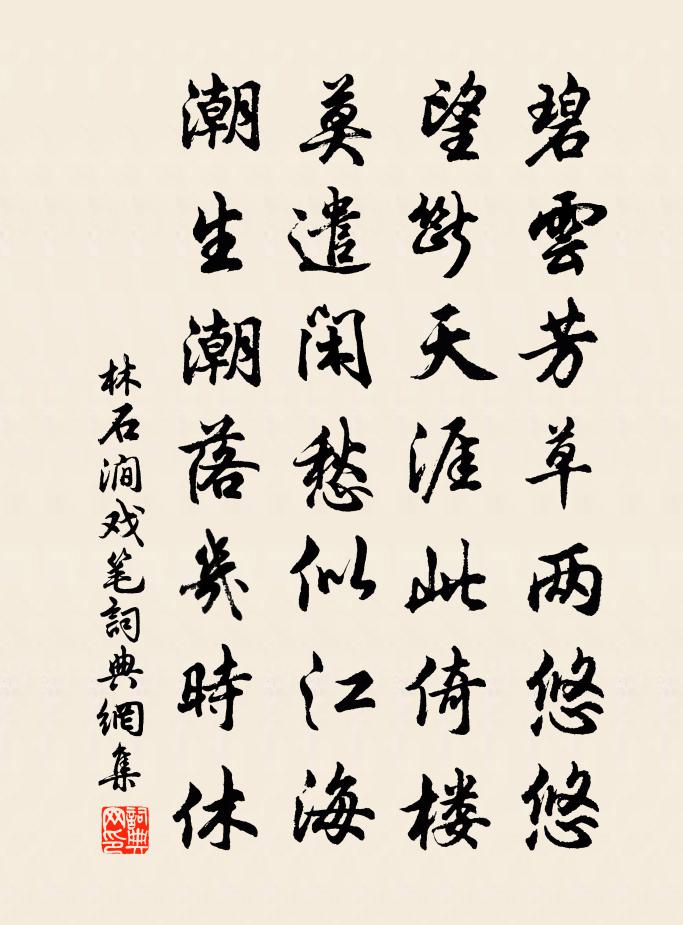 碧雲芳草两悠悠
望断天涯此倚楼
莫遣闲愁似江海
潮生潮落幾時休
林石涧戏笔詞典網集
詞典网印